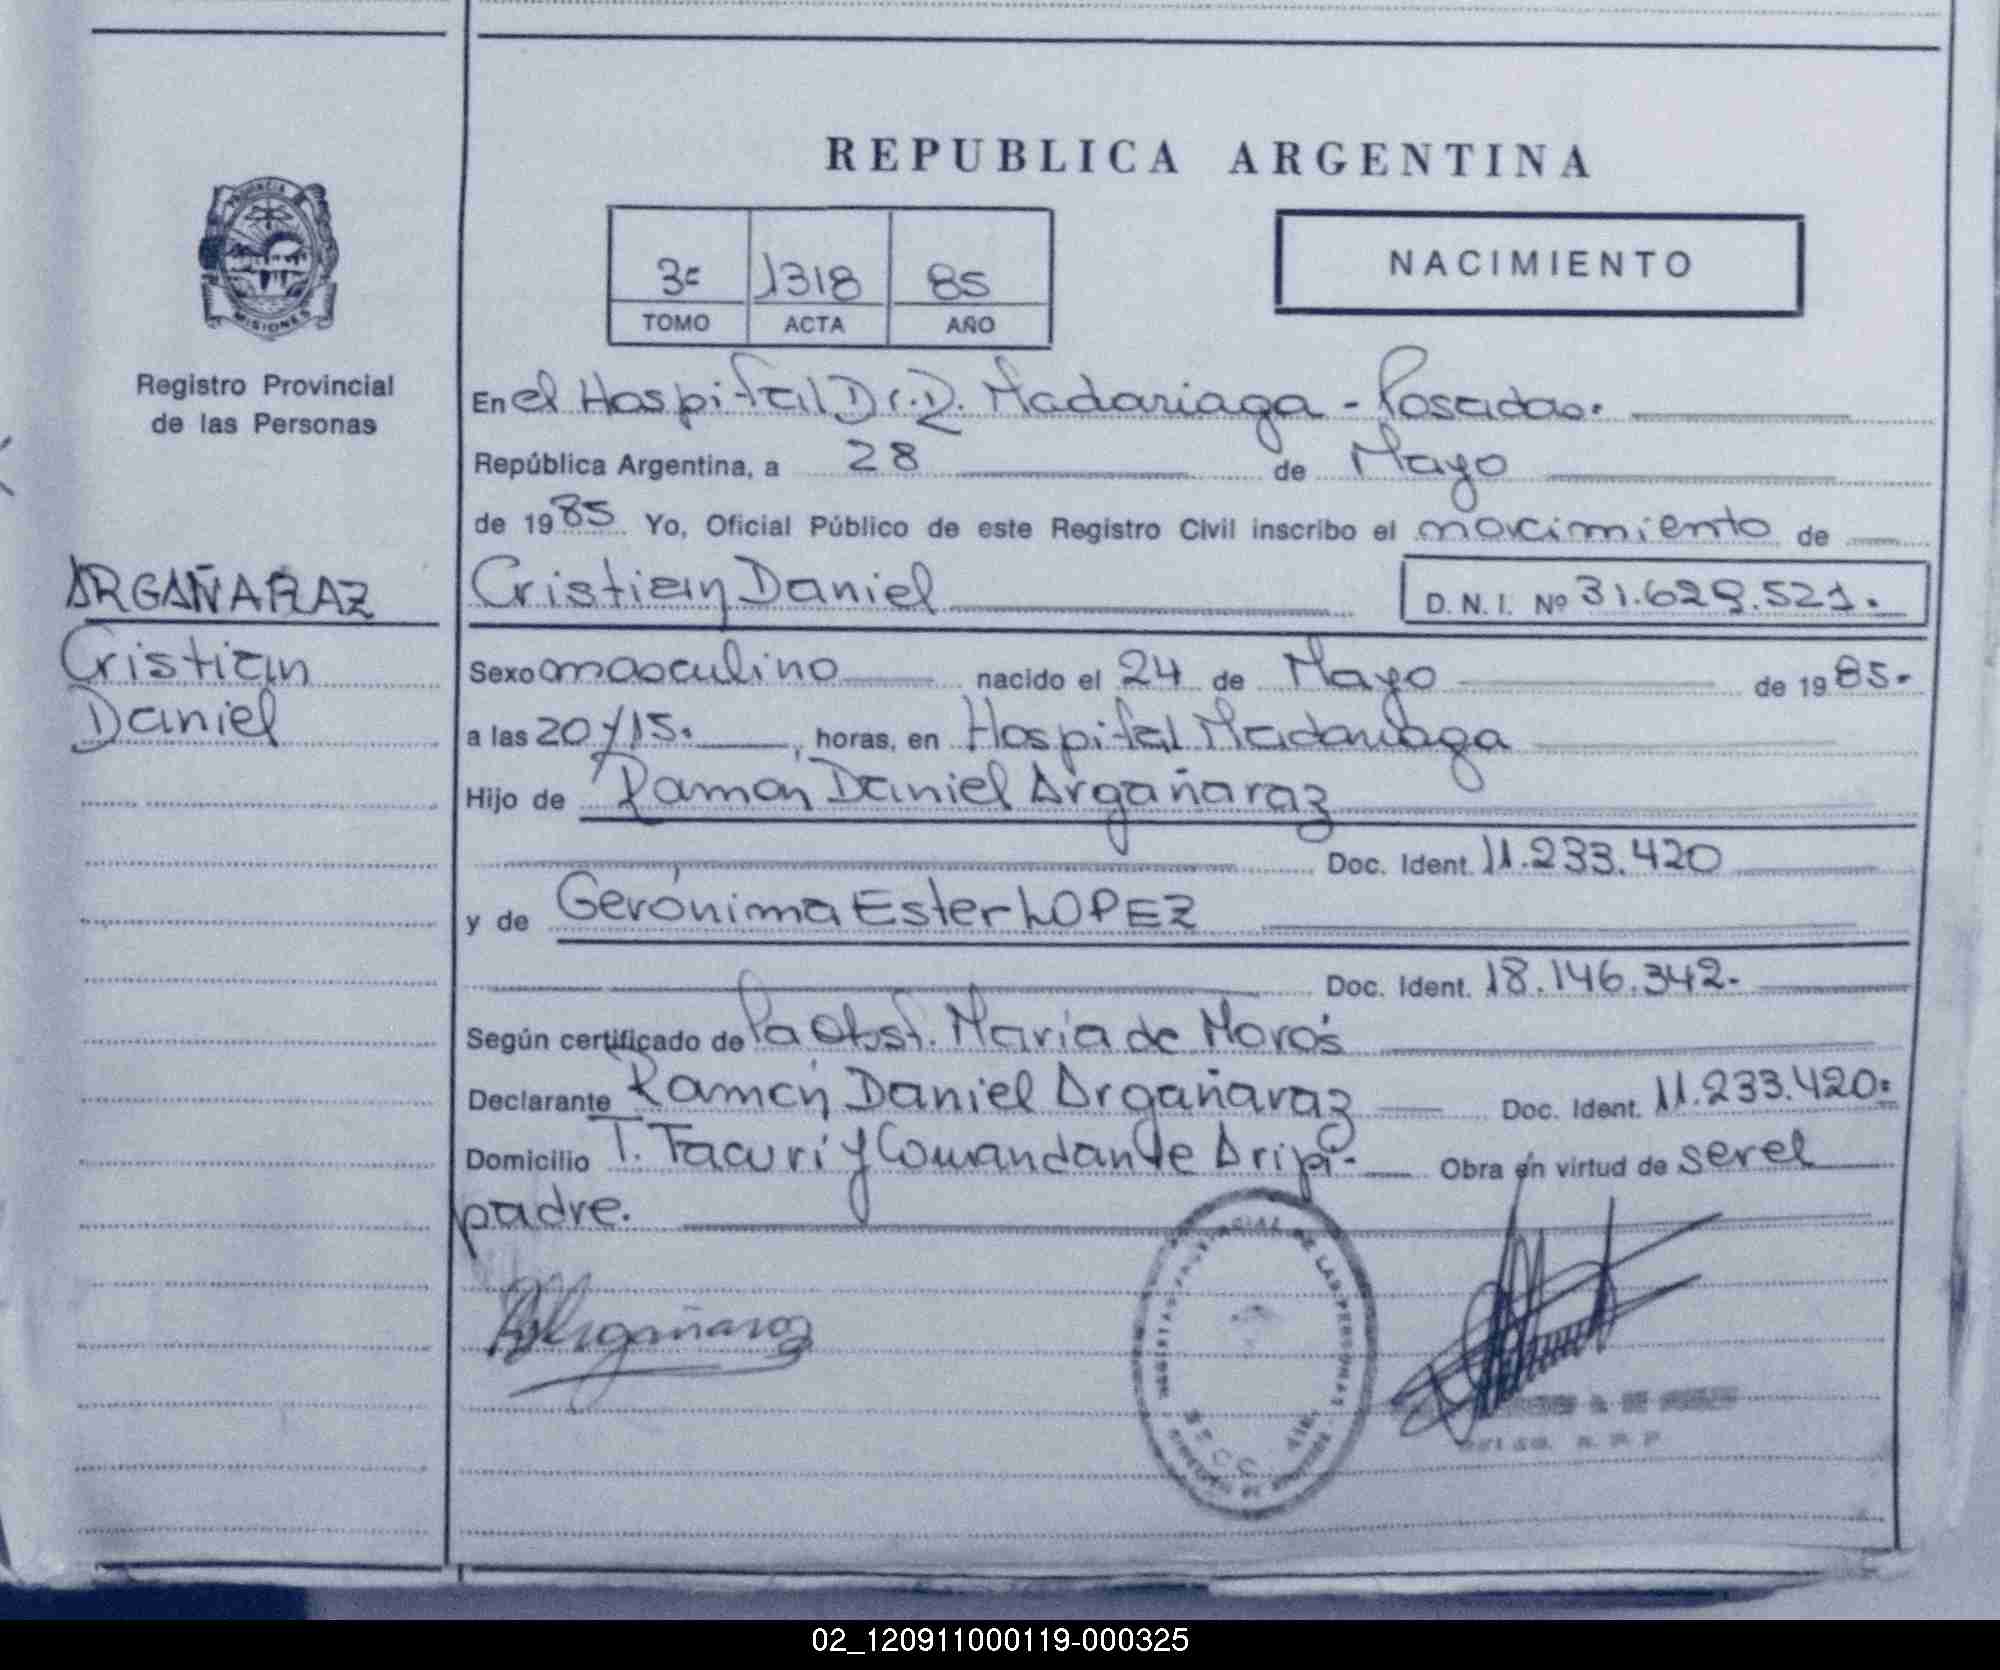 REPUBLICA ARGENTINA
PROVINCIA
MISIONES
Registro Provincial
de las Personas
3º 1318 85
TOMO ACTA AÑO
NACIMIENTO
En el Hospital Dr. R. Madariaga - Posadas.
República Argentina, a 28 de Mayo
de 1985 Yo, Oficial Público de este Registro Civil inscribo el nacimiento de
ARGAÑARAZ
Cristian
Daniel
Cristian Daniel D.N.I. Nº 31.629.521.
Sexo masculino nacido el 24 de Mayo de 1985.
a las 20 y 15. horas, en Hospital Madariaga
Hijo de Ramón Daniel Argañaraz
Doc. Ident. 11.233.420
y de Gerónima Ester LOPEZ
Doc. Ident. 18.146.342.
Según certificado de la Obst. María de Morós
Declarante Ramón Daniel Argañaraz Doc. Ident. 11.233.420=
Domicilio T. Tacurí y Comandante Aripí. Obra en virtud de ser el
padre.
Argañaraz
DE LAS PERSONAS
02_120911000119-000325